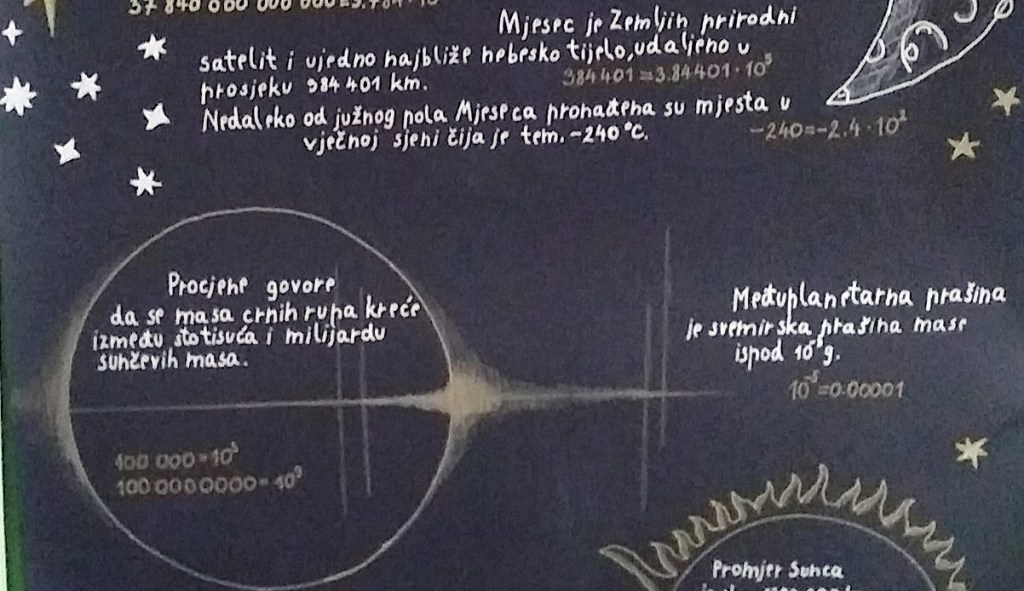 37 840 000 000 000=3.784·10
Mjesec je Zemljin prirodni
satelit i ujedno najbliže nebesko tijelo, udaljeno u
prosjeku 384 401 km.
384 401=3.84401·10⁵
Nedaleko od južnog pola Mjeseca pronađena su mjesta u
vječnoj sjeni čija je tem. -240°C.
-240=-2.4·10²
Procjene govore
da se masa crnih rupa kreće
između stotisuća i milijardu
sunčevih masa.
100 000=10⁵
100 0000000=10⁹
Međuplanetarna prašina
je svemirska prašina mase
ispod 10⁻⁵g.
10⁻⁵=0.00001
Promjer Sunca